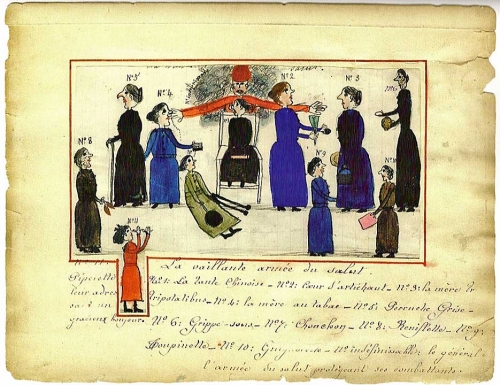 N°5
N°4
N°2
N°3
N°8
N°9
N°11
La vaillante armée du salut.
Piperette N°1: La Tante Chinoise - N°2: Cœur d'artichaut - N°3: la mère
leur adres Tripotatibus - N°4: la mère au tabac - N°5: Perruche Grise -
sant un
gracieux bonjour. N°6: Grippe-sous - N°7: Chonchon - N°8: Reniflette - N°9
Toupinette - N°10: - N° indéfinissable: le général
l'armée du salut protégeant ses combattants.